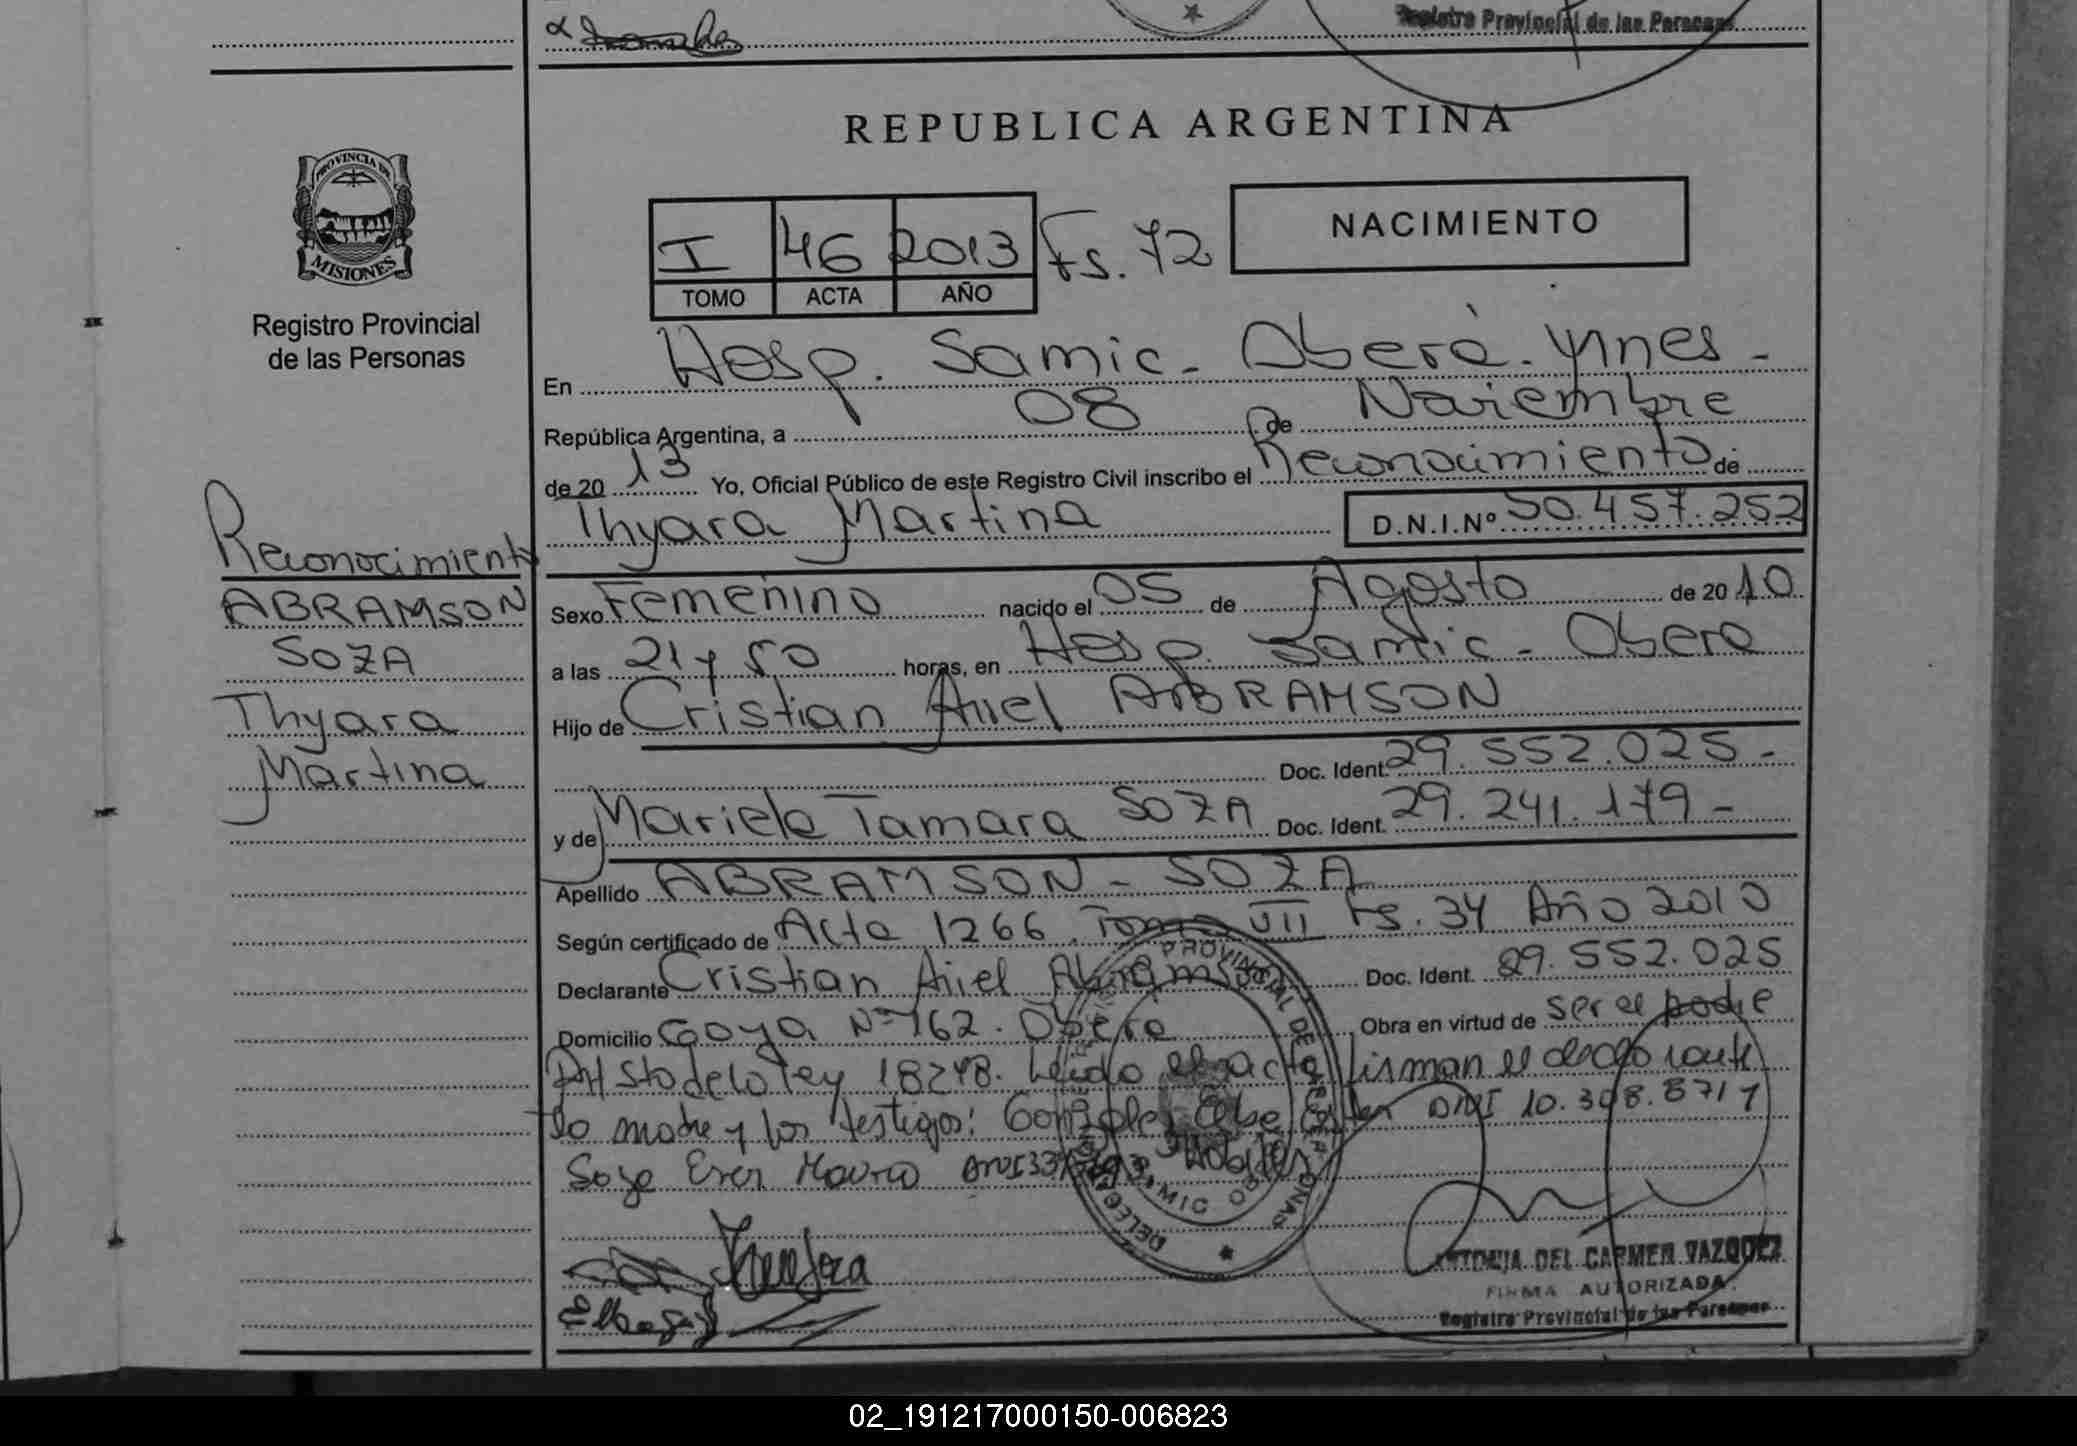 Registro Provincial de las Personas
REPUBLICA ARGENTINA
PROVINCIA DE
MISIONES
Registro Provincial
de las Personas
I 46 2013 Fs. 72
TOMO ACTA AÑO
NACIMIENTO
En Hosp. Samic - Oberá - Mnes -
República Argentina, a 08 de Noviembre
de 20 13 Yo, Oficial Público de este Registro Civil inscribo el Reconocimiento de
Thyara Martina D.N.I.Nº 50.457.252
Reconocimiento
ABRAMSON
SOZA
Thyara
Martina
Sexo Femenino nacido el 05 de Agosto de 20 10
a las 21 y 50 horas, en Hosp. Samic - Obera
Hijo de Cristian Ariel ABRAMSON
Doc. Ident. 29.552.025 -
y de Mariela Tamara SOZA Doc. Ident. 29.241.179 -
Apellido ABRAMSON - SOZA
Según certificado de Acta 1266 Tomo VII Fs. 34 Año 2010
Declarante Cristian Ariel Abramson Doc. Ident. 29.552.025
Domicilio Goya Nº 762. Obera Obra en virtud de ser el padre
Art 5to de la ley 18248. Leida el acta firman el declarante
la madre y los testigos: Gonzalez Elba Ester DNI
Soza Ever Mauro DNI
PROVINCIAL DE LAS PERSONAS
DELEG SAMIC OBERA
ANTONIA DEL CARMEN VAZQUEZ
FIRMA AUTORIZADA
Registro Provincial de las Personas
02_191217000150-006823